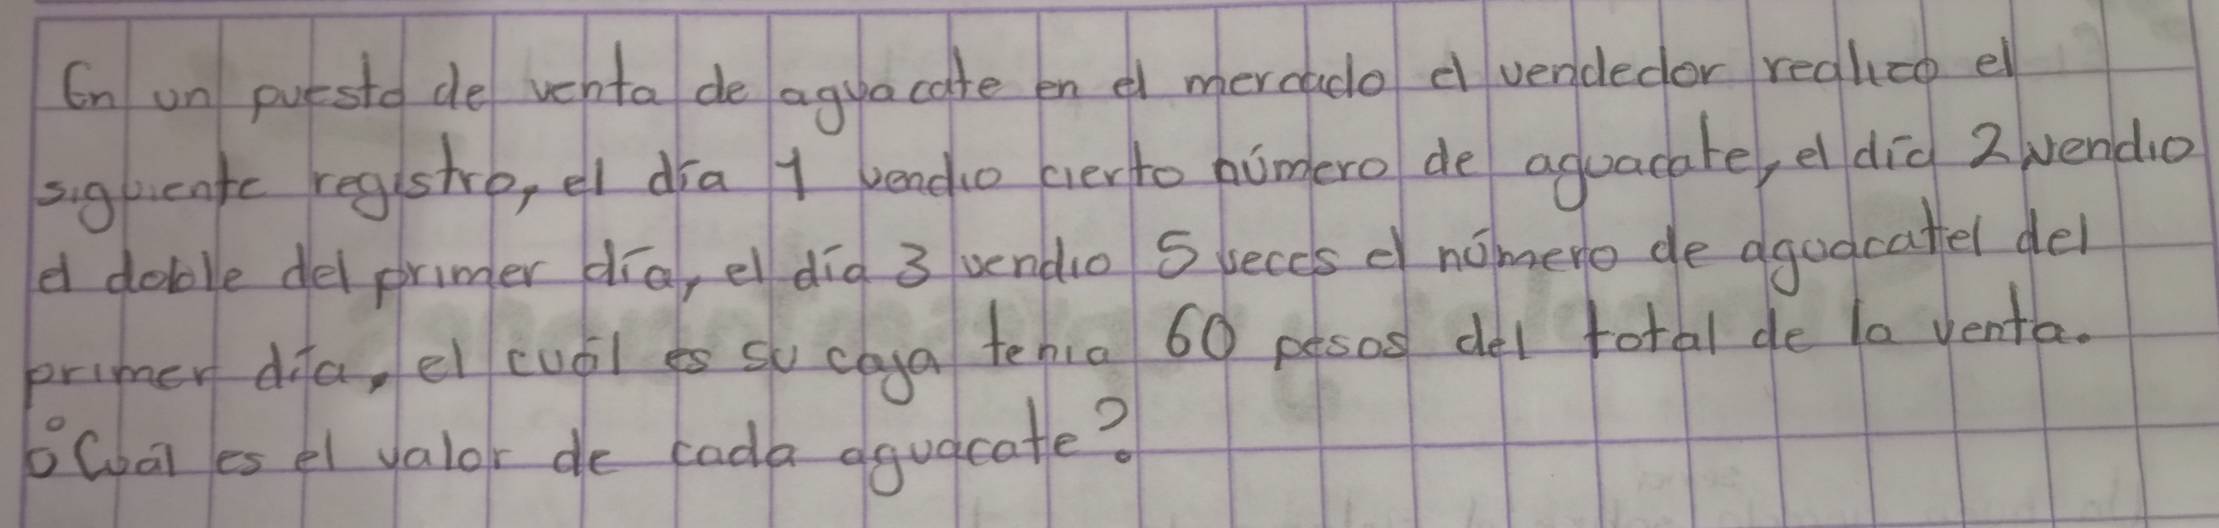 En un puesto de venta de aguacate en el mercado el vendedor realizo el
siguiente registro, el día 1 vendio cierto número de aguacate, el día 2 vendio
el doble del primer día, el día 3 vendio 5 veces el número de aguacatel del
primer día, el cuál es su caya tenia 60 pesos del total de la venta.
¿Cuál es el valor de cada aguacate?